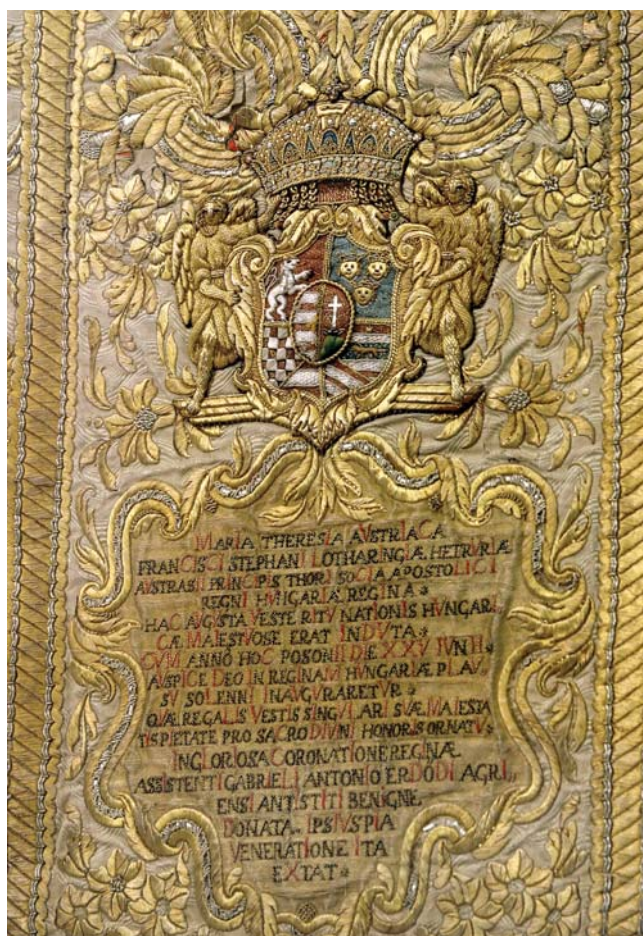 MARIA THERESIA AVSTRIACA
FRANCISCI STEPHANI LOTHARINGIÆ HETRVRIÆ
AVSTRASII PRINCIPIS THORI SOCIA APOSTOLICI
REGNI HVNGARIÆ REGINA
HAC AVGVSTA VESTE RITV NATIONIS HVNGARI,
CÆ MAIESTVOSE ERAT INDVTA
CVM ANNO HOC POSONII DIE XXV IVNII
AVSPICE DEO IN REGINAM HVNGARIÆ PLAV
SV SOLENNI INAVGVRARETVR
QVÆ REGALIS VESTIS SINGVLARI SVÆ MAIESTA
TIS PIETATE PRO SACRO DIVINI HONORIS ORNATV
IN GLORIOSA CORONATIONE REGINÆ
ASSISTENTI GABRIELI ANTONIO ERDÖDI AGRI,
ENSI ANTISTITI BENIGNE
DONATA IPSIVS PIA
VENERATIONE ITA
EXTAT